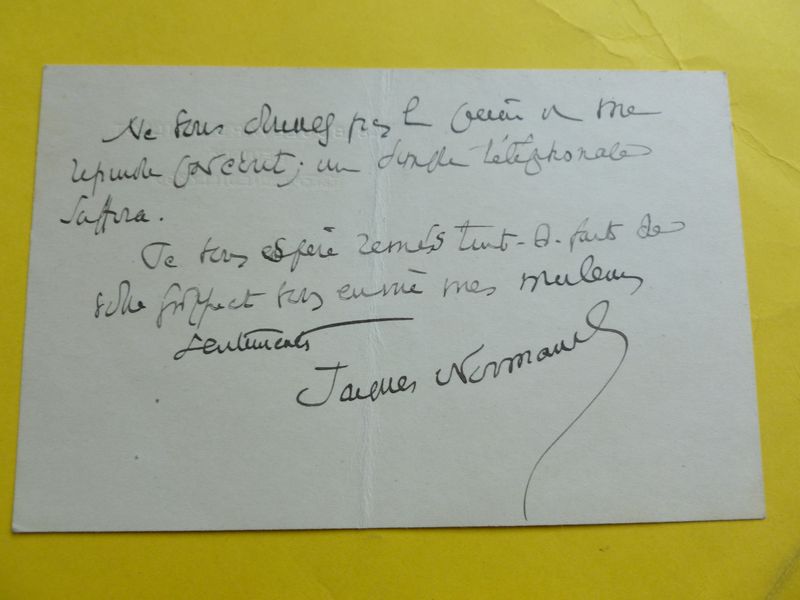 Ne vous donnez pas la peine de me
répondre par écrit; un simple téléphonage
suffira.
Je vous espère remis tout-à-fait de
votre grippe et vous envoie mes meilleurs
sentiments
Jacques Normand